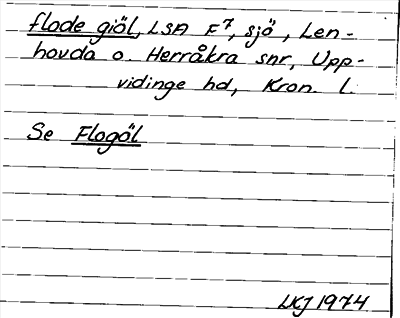 flode giöl, LSA F7, sjö, Len-
hovda o. Herråkra snr, Upp-
vidinge hd, Kron. l.
Se Flogöl
LKJ 1974